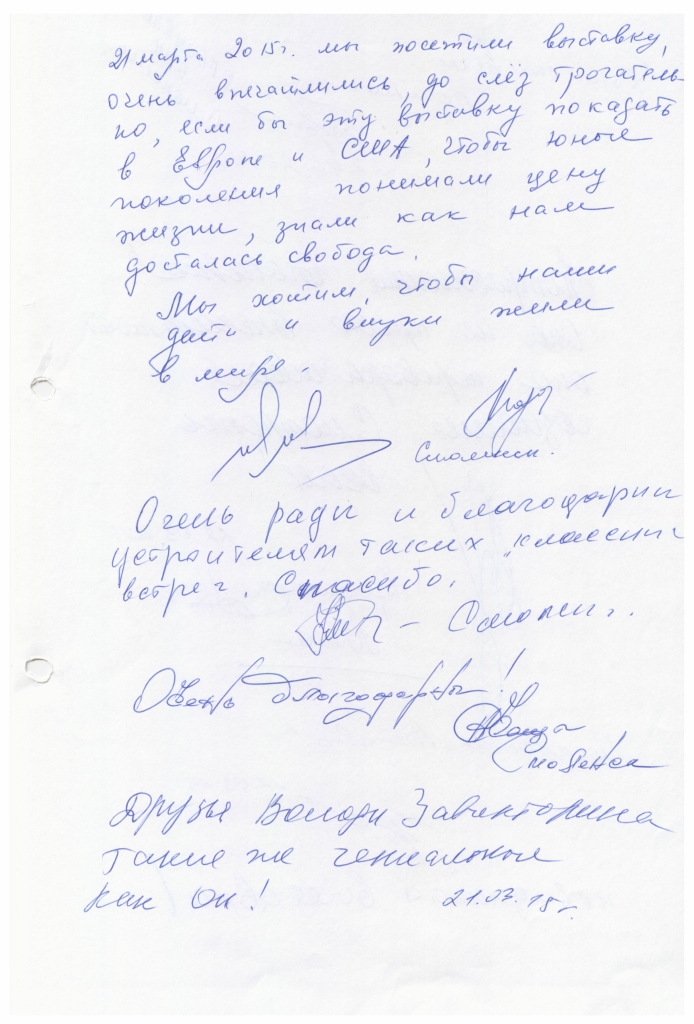 21 марта 2015г. мы посетили выставку,
очень впечатлились, до слёз трогатель-
но, если бы эту выставку показать
в Европе и США, чтобы юные
поколения понимали цену
жизни, знали как нам
досталась свобода.
Мы хотим, чтобы наши
дети и внуки жили
в мире.
Смоленск.
Очень рады и благодарны
устроителям таких "классных"
встреч. Спасибо.
– Смоленск.
Очень благодарны!
Смоленск
Друзья Володи Завикторина
такие же гениальные
как он!
21.03.15г.